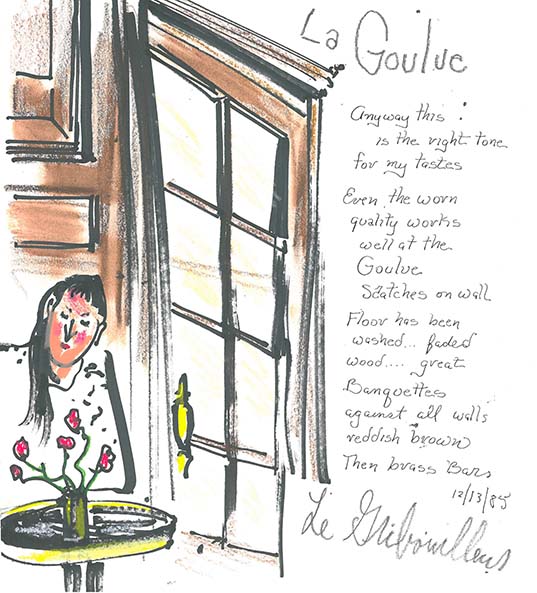 La Goulue
Anyway this :
is the right tone
for my tastes
Even the worn
quality works
well at the
Goulue
Scatches on wall
Floor has been
washed... faded
wood.... great
Banquettes
against all walls
reddish brown
Then brass Bars
12/13/85
Le Gribouilleur